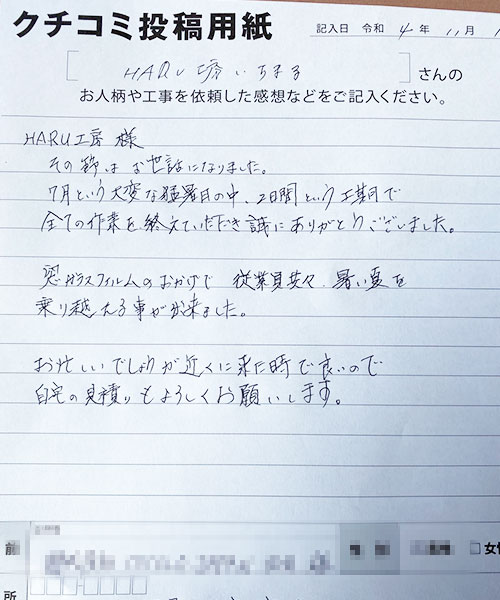 クチコミ投稿用紙
記入日 令和 4 年 11 月
HARU さんの
お人柄や工事を依頼した感想などをご記入ください。
HARU工房 様
その節は お世話になりました。
7月という大変な猛暑日の中、2日間という工期で
全ての作業を終えていただき誠にありがとうございました。
窓ガラスフィルムのおかげで 従業員共々、暑い夏を
乗り越える事が出来ました。
お忙しいでしょうが近くに来た時で良いので
自宅の見積りもよろしくお願いします。
前
□女性
所